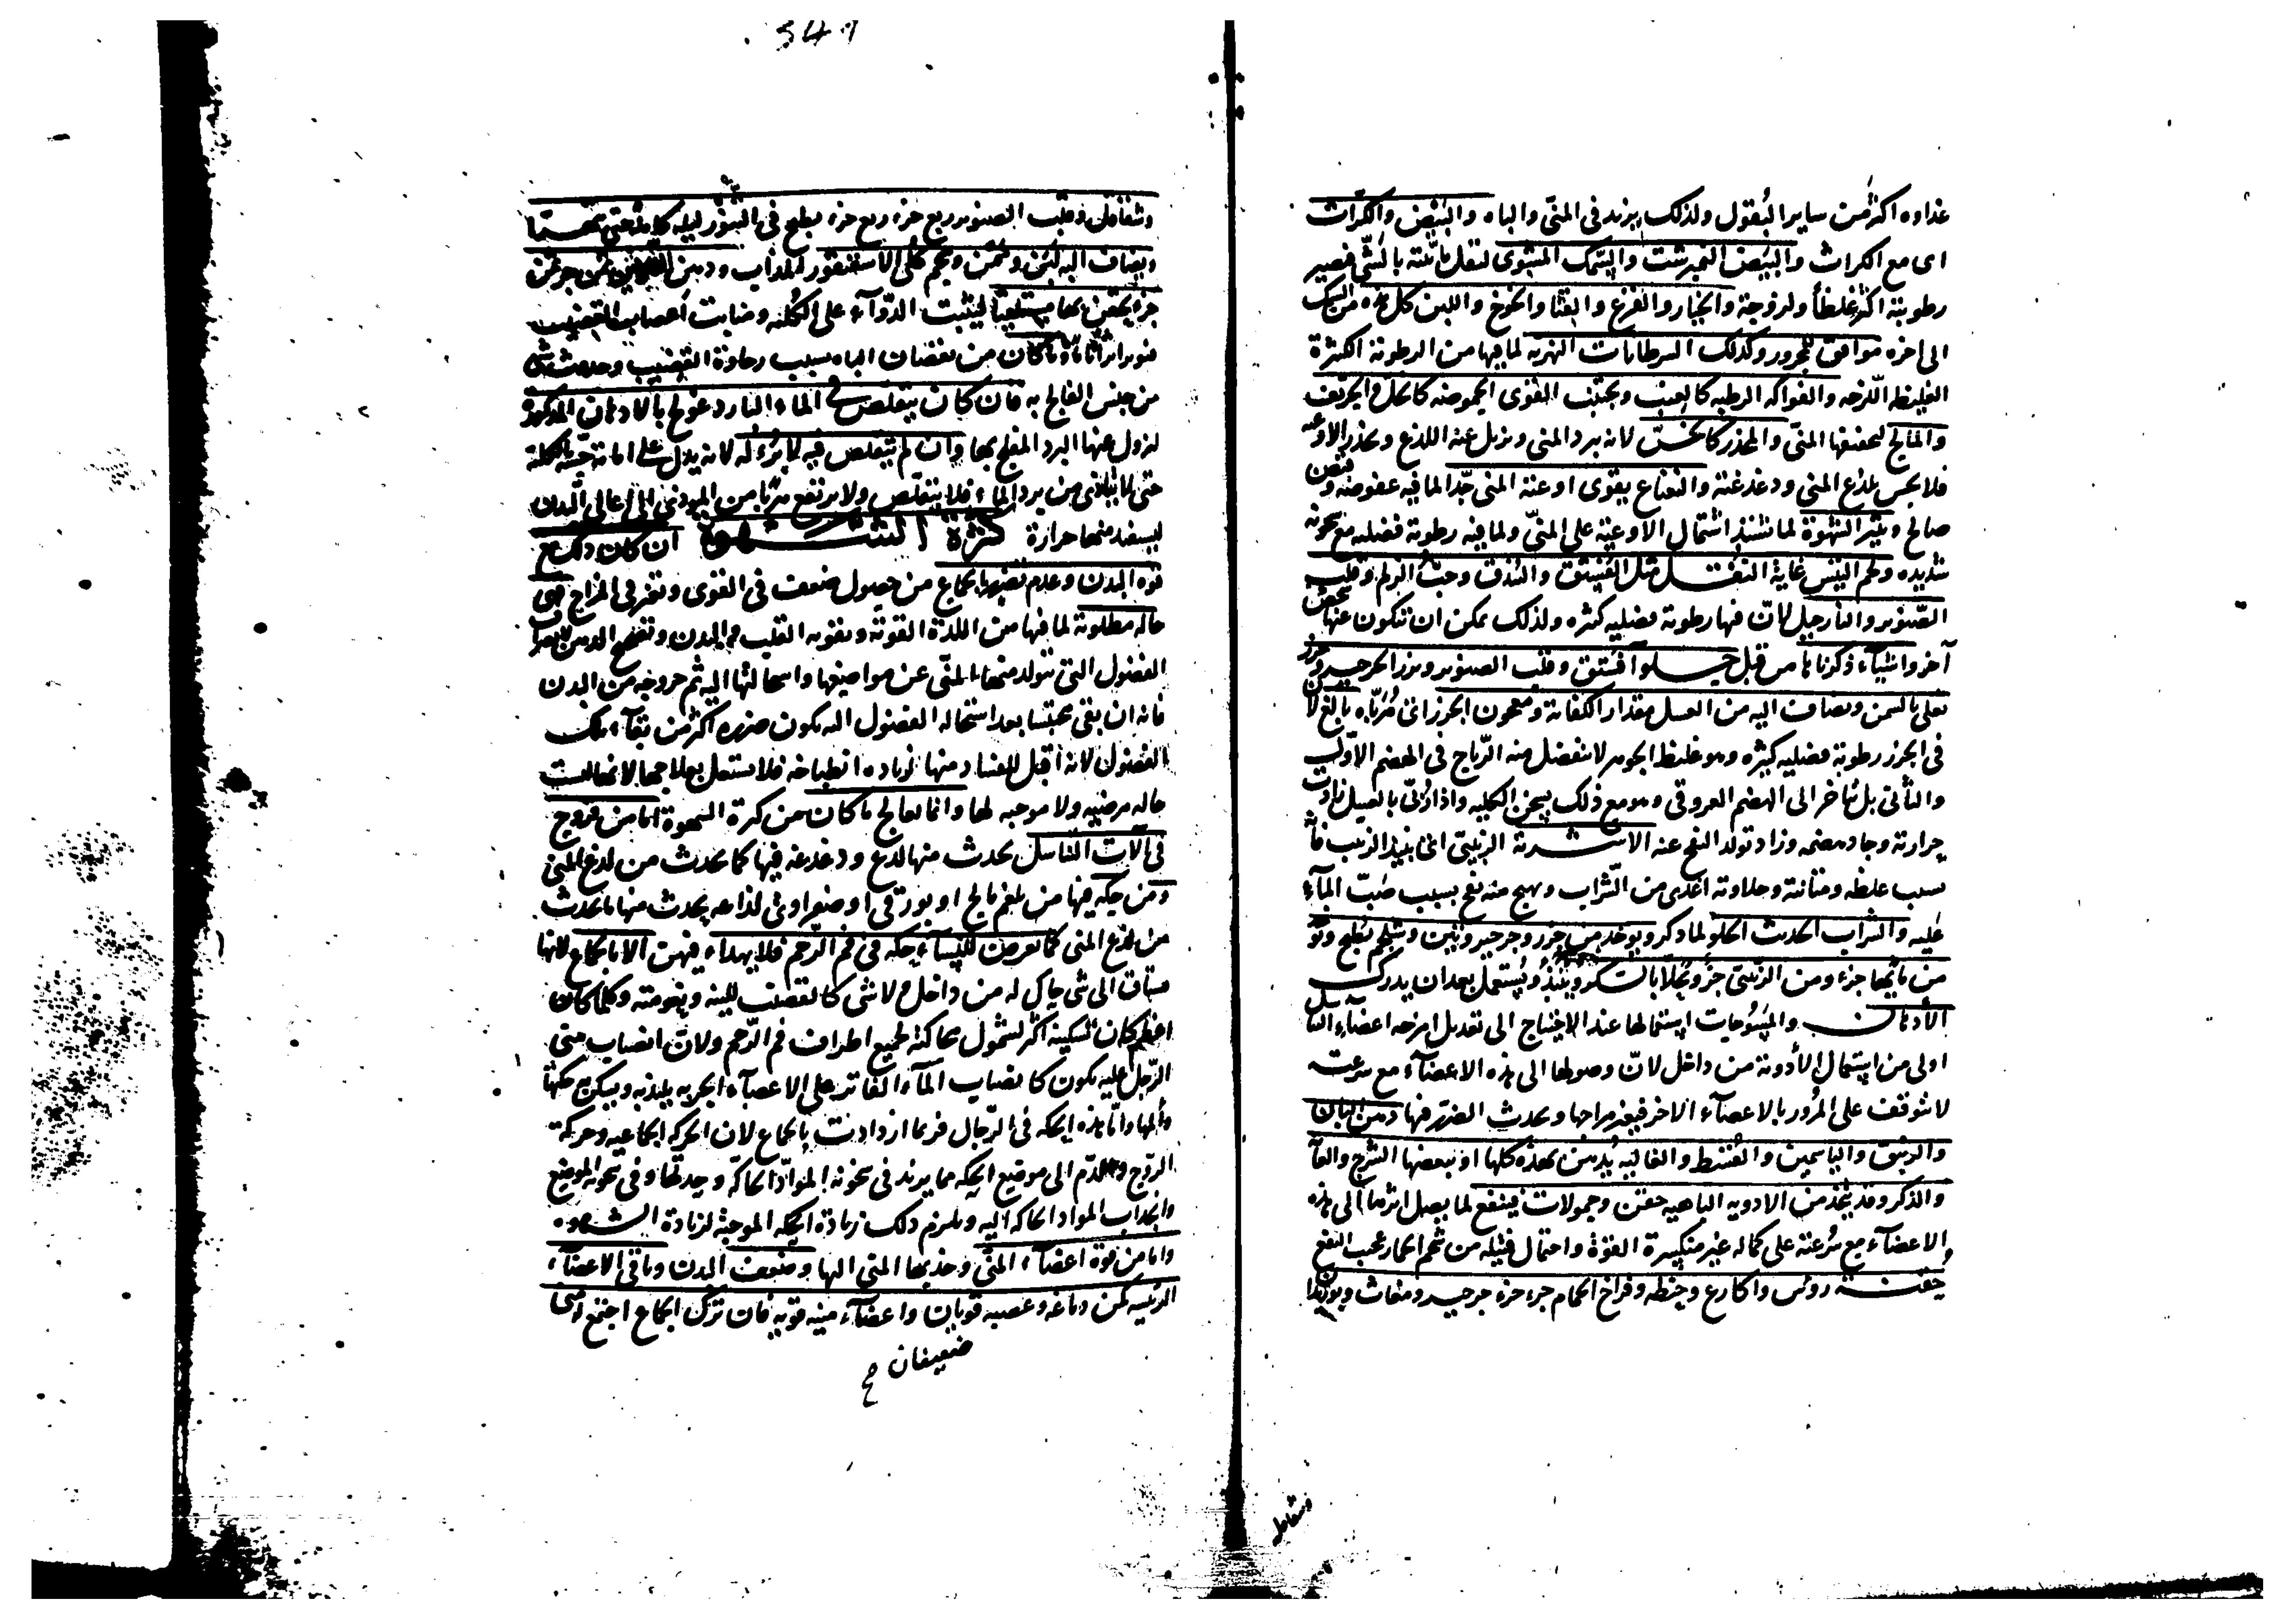 غذاوه اكثر من ساير البقول ولذلك يزيد في المنى والباه والبيض والكراث
اى مع الكراث والبيض النيمبرشت والسمك المشوى لتقل مائيته بالشى فيصير
رطوبته اكثر غلظا ولزوجة والخيار والقرع والقثا والخوخ واللبن كل هذه من السمك
الى اخره موافق للمحرور وكذلك السرطانات النهريه لما فيها من الرطوبة الكثيرة
الغليظه اللزجه والفواكه الرطبه كالعنب ويجتنب القوى الحموضه كالخل والحريف
والمالح لتجفيفها المنى والمخدر كالخس لانه يبرد المنى ويزيل عنه اللذع ويخدر الاوعيه
فلا يحس بلذع المنى ودغدغته والنعناع يقوى اوعية المنى جدا لما فيه عفوصه وقبض
صالح ويثير الشهوة لما تشتد اشتمال الاوعية على المنى ولما فيه رطوبة فضليه مع سخونه
شديده ولحم التيس غاية النقل مثل الفستق والبندق وحب الزلم وقلب
الصنوبر والنارجيل لان فيها رطوبة فضليه كثيره ولذلك يمكن ان تتكون عنها
آخر واشياء ذكرناها من قبل فستق وقلب الصنوبر وبزر الجرجير وجزر
تقلى بالسمن ويضاف اليه من العسل مقدار الكفاية ومعجون الجزر اى مرباه بالغ لان
فى الجزر رطوبة فضليه كثيره وهو غليظ الجوهر لا تنفصل منه الرياح فى الهضم الاول
والثانى بل يتاخر الى الهضم العروقى وهو مع ذلك يسخن الكليه واذا ربى بالعسل زادت
حرارته وجاد هضمه وزاد تولد النفخ عنه الاشربة الزبيبى اى نبيذ الزبيب فانه
بسبب غلظه ومتانته وحلاوته اغذى من الشراب ويهيج منه نفخ بسبب صب الماء
عليه والشراب الحديث الحلو لما ذكر ويوخذ من جزر وجرجير وتين وشلجم يطبخ ويوخذ
من مائها جزء ومن الزبيبى جزو يحلا بالسكر وينبذ ويستعمل بعد ان يدرك
الأدهان والمسوحات استعمالها عند الاحتياج الى تعديل امزجه اعضاء التناسل
اولى من استعمال الأدوية من داخل لان وصولها الى هذه الاعضاء مع سرعت
لا تتوقف على المرور بالاعضاء الاخر فيغير مزاجها ويحدث الضرر فيها دهن البان
والزنبق والياسمين والقسط والغاليه يدهن بهذه كلها او ببعضها الشرج والعانة
والذكر وقد يتخذ من الادويه الباهيه حقن وحمولات فينتفع لما يصل اثرها الى هذه
الاعضاء مع سرعته على كماله غير منكسرة القوة واحتمال فتيله من شحم الحمار عجيب النفع
حقنة روس واكارع وحنطه وفراخ الحمام جزء جزء جرجير ومغاث وبوزيدان
وشقاقل
541
وشقاقل وقلب الصنوبر ربع جزء ربع جزء يطبخ فى التنور ليله كاملة حتى
ويضاف اليه لبن وسمن وشحم كلى الاسقنقور المذاب ودهن من جزء ثمن
جزء يحقن بها مستلقيا ليثبت الدواء على الكليه ومنابت اعصاب القضيب
فتوبر اثرا تاما وما كان من نقصان الباه بسبب رخاوة القضيب وحدوث شى
من جنس الفالج به فان كان يتقلص فى الماء البارد عولج بالادهان المذكورة
لزوال عنها البرد المفلج بها وان لم يتقلص فيه لا برؤ له لانه يدل على اماتة حسه بالكلية
حتى لا يتاذى من برد الماء فلا يتقلص ولا يرتفع هربا من الموذى الى اعالى البدن
ليستفيد منها حرارة كثرة الشهوة ان كان ذلك مع
قوه البدن وعدم تضرر بالجماع من حصول ضعف فى القوى وتغير فى المزاج فهى
حاله مطلوبة لما فيها من اللذة القوية وتقويه القلب والبدن وتفتيح
الفضول التى تتولد منها المنى عن مواضعها واستحالتها اليه ثم خروجه من البدن
فانه ان بقى محتبسا بعد استحاله الفضول اليه يكون ضرره اكثر من بقاء تلك
الفضول لانه اقبل للفساد منها لزياده انطباخه فلا يشتغل بعلاجها لانها ليست
حاله مرضيه ولا موجبه لها وانما يعالج ما كان من كثرة الشهوة اما من قروح
فى آلات التناسل يحدث منها لذع ودغدغه فيها كما يحدث من لذع المنى
ومن حكه فيها من بلغم مالح او بورقى او صفرا وشى لذاعه يحدث منها ما يحدث
من لذع المنى كما تعرض للنساء حكه فى فم الرحم فلا يهداء فيهن الا بالجماع لانها
تشتاق الى شى حاك له من داخل ولا شى كالقضيب للينه ونعومته وكلما كان
اغلظ كان تسكينه اكثر لشمول حكاكته لجميع اطراف فم الرحم ولان انصباب منى
الرجل عليه يكون كانصباب الماء الفاتر على الاعضاء الجربه يلذذه ويسكن حكتها
والمها واما هذه الحكه فى الرجال فربما ازدادت بالجماع لان الحركه الجماعيه وحركة
الروح والدم الى موضع الحكه مما يزيد فى سخونه المواد الحاكه وحدتها وفى سخونه الموضع
وانجذاب المواد الحاكه اليه ويلزم ذلك زيادة الحكه الموجبة لزيادة الشهوه
واما من قوة اعضاء المنى وجذبها المنى اليها وضعف البدن وباقى الاعضاء
الرئيسه كمن دماغه وعصبه قويان واعضاء منيه قويه فان ترك الجماع اجتمع
ضعيفان